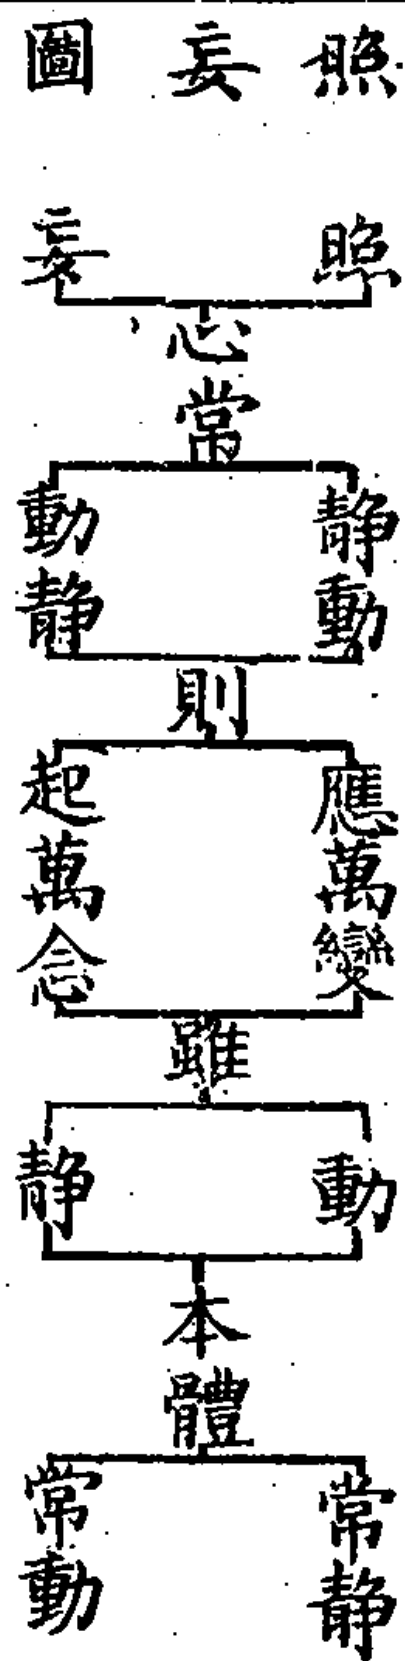 照妄圖
照 妄
心常
静動 動静
則
應萬變 起萬念
雖
動 静
本體
常静 常動